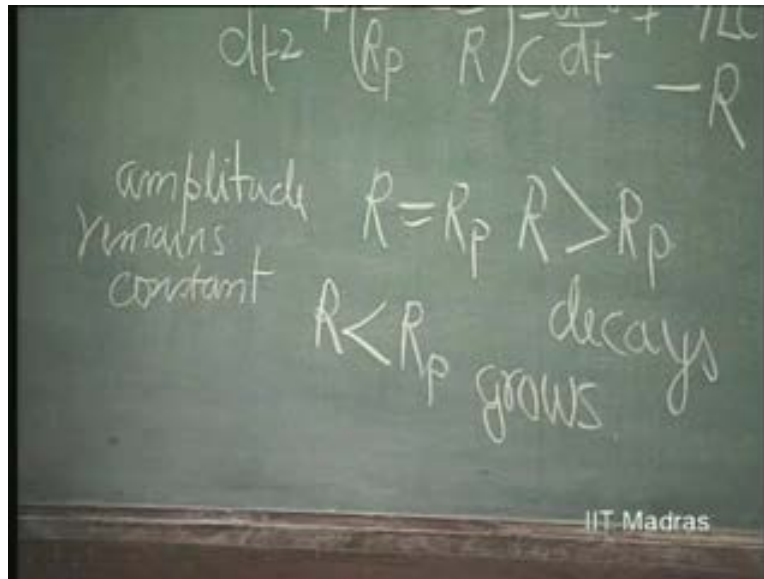 dt2 + (Rp R) C dt + - R
amplitude
remains
constant
R = Rp R > Rp
decays
R < Rp
grows
IIT Madras